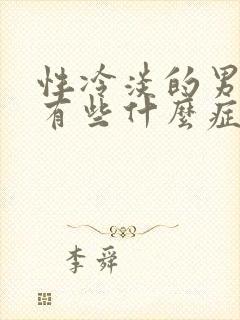 性冷淡的男
有些什麼症
李舜